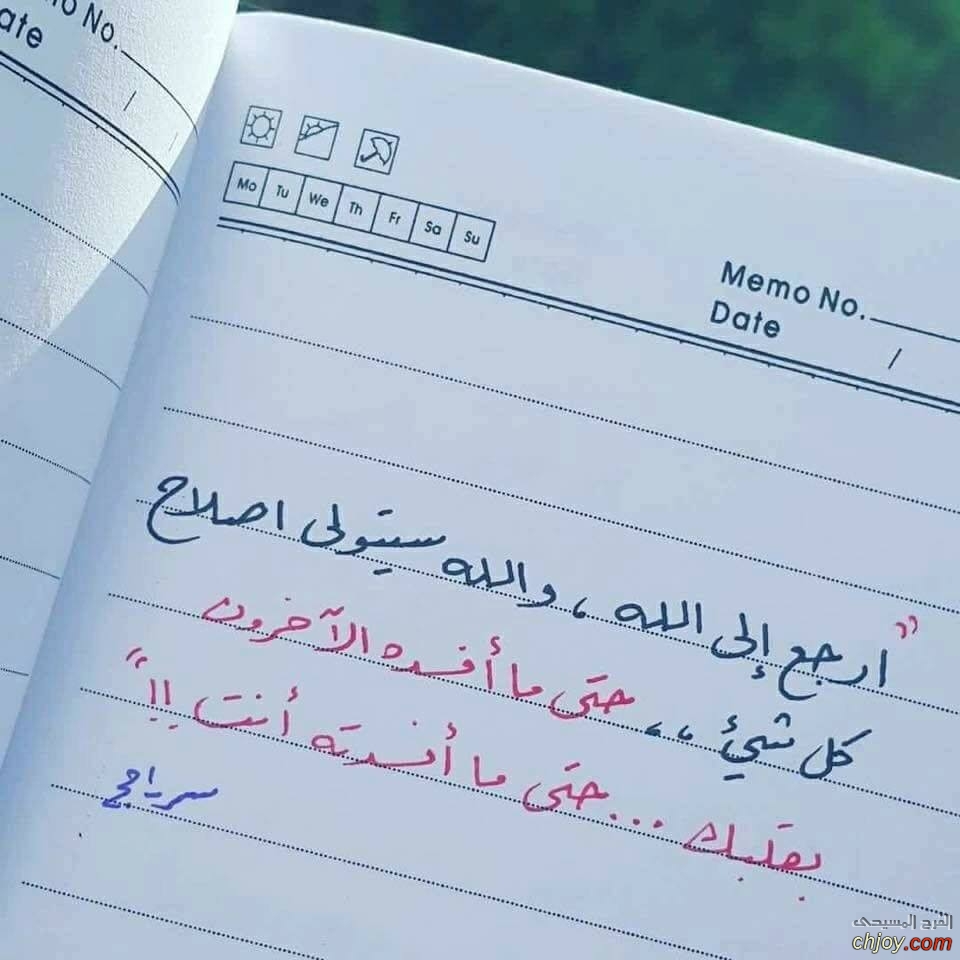 o No.
ate
/
Mo Tu We Th Fr Sa Su
Memo No.
Date /
"ارجع إلى الله ، والله سيتولى اصلاح
كل شيئ ،، حتى ما أفسده الآخرون
بقلبك ... حتى ما أفسدته أنت !!"
الفرح المسيحى
chjoy.com